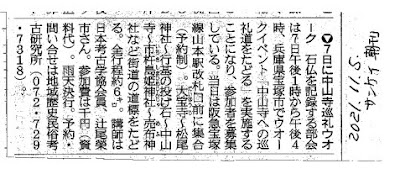 ◆7日に中山寺巡礼ウオ
ーク 石仏を記録する部会
は7日午後1時から午後4
時、兵庫県宝塚市でウオー
クイベント「中山寺への巡
礼道をたどる」を実施する
ことになり、参加者を募集
している。当日は阪急宝塚
線山本駅改札口前に集合
(予約制)。大宝寺～松尾
神社～行基の投げ石～中山
寺～市杵島姫神社～売布神
社など街道の道標をたど
る。全行程約6㌔。講師は
日本考古学協会員、辻尾榮
市さん。参加費は千円(資
料代)。雨天決行。予約・
問い合せは地域歴史民俗考
古研究所(072・729
・7318)。
2021.11.5.
サンケイ 朝刊